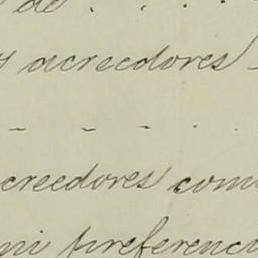 de . . . .
acreedores -
- - - . .
creedores com
ni preferenci